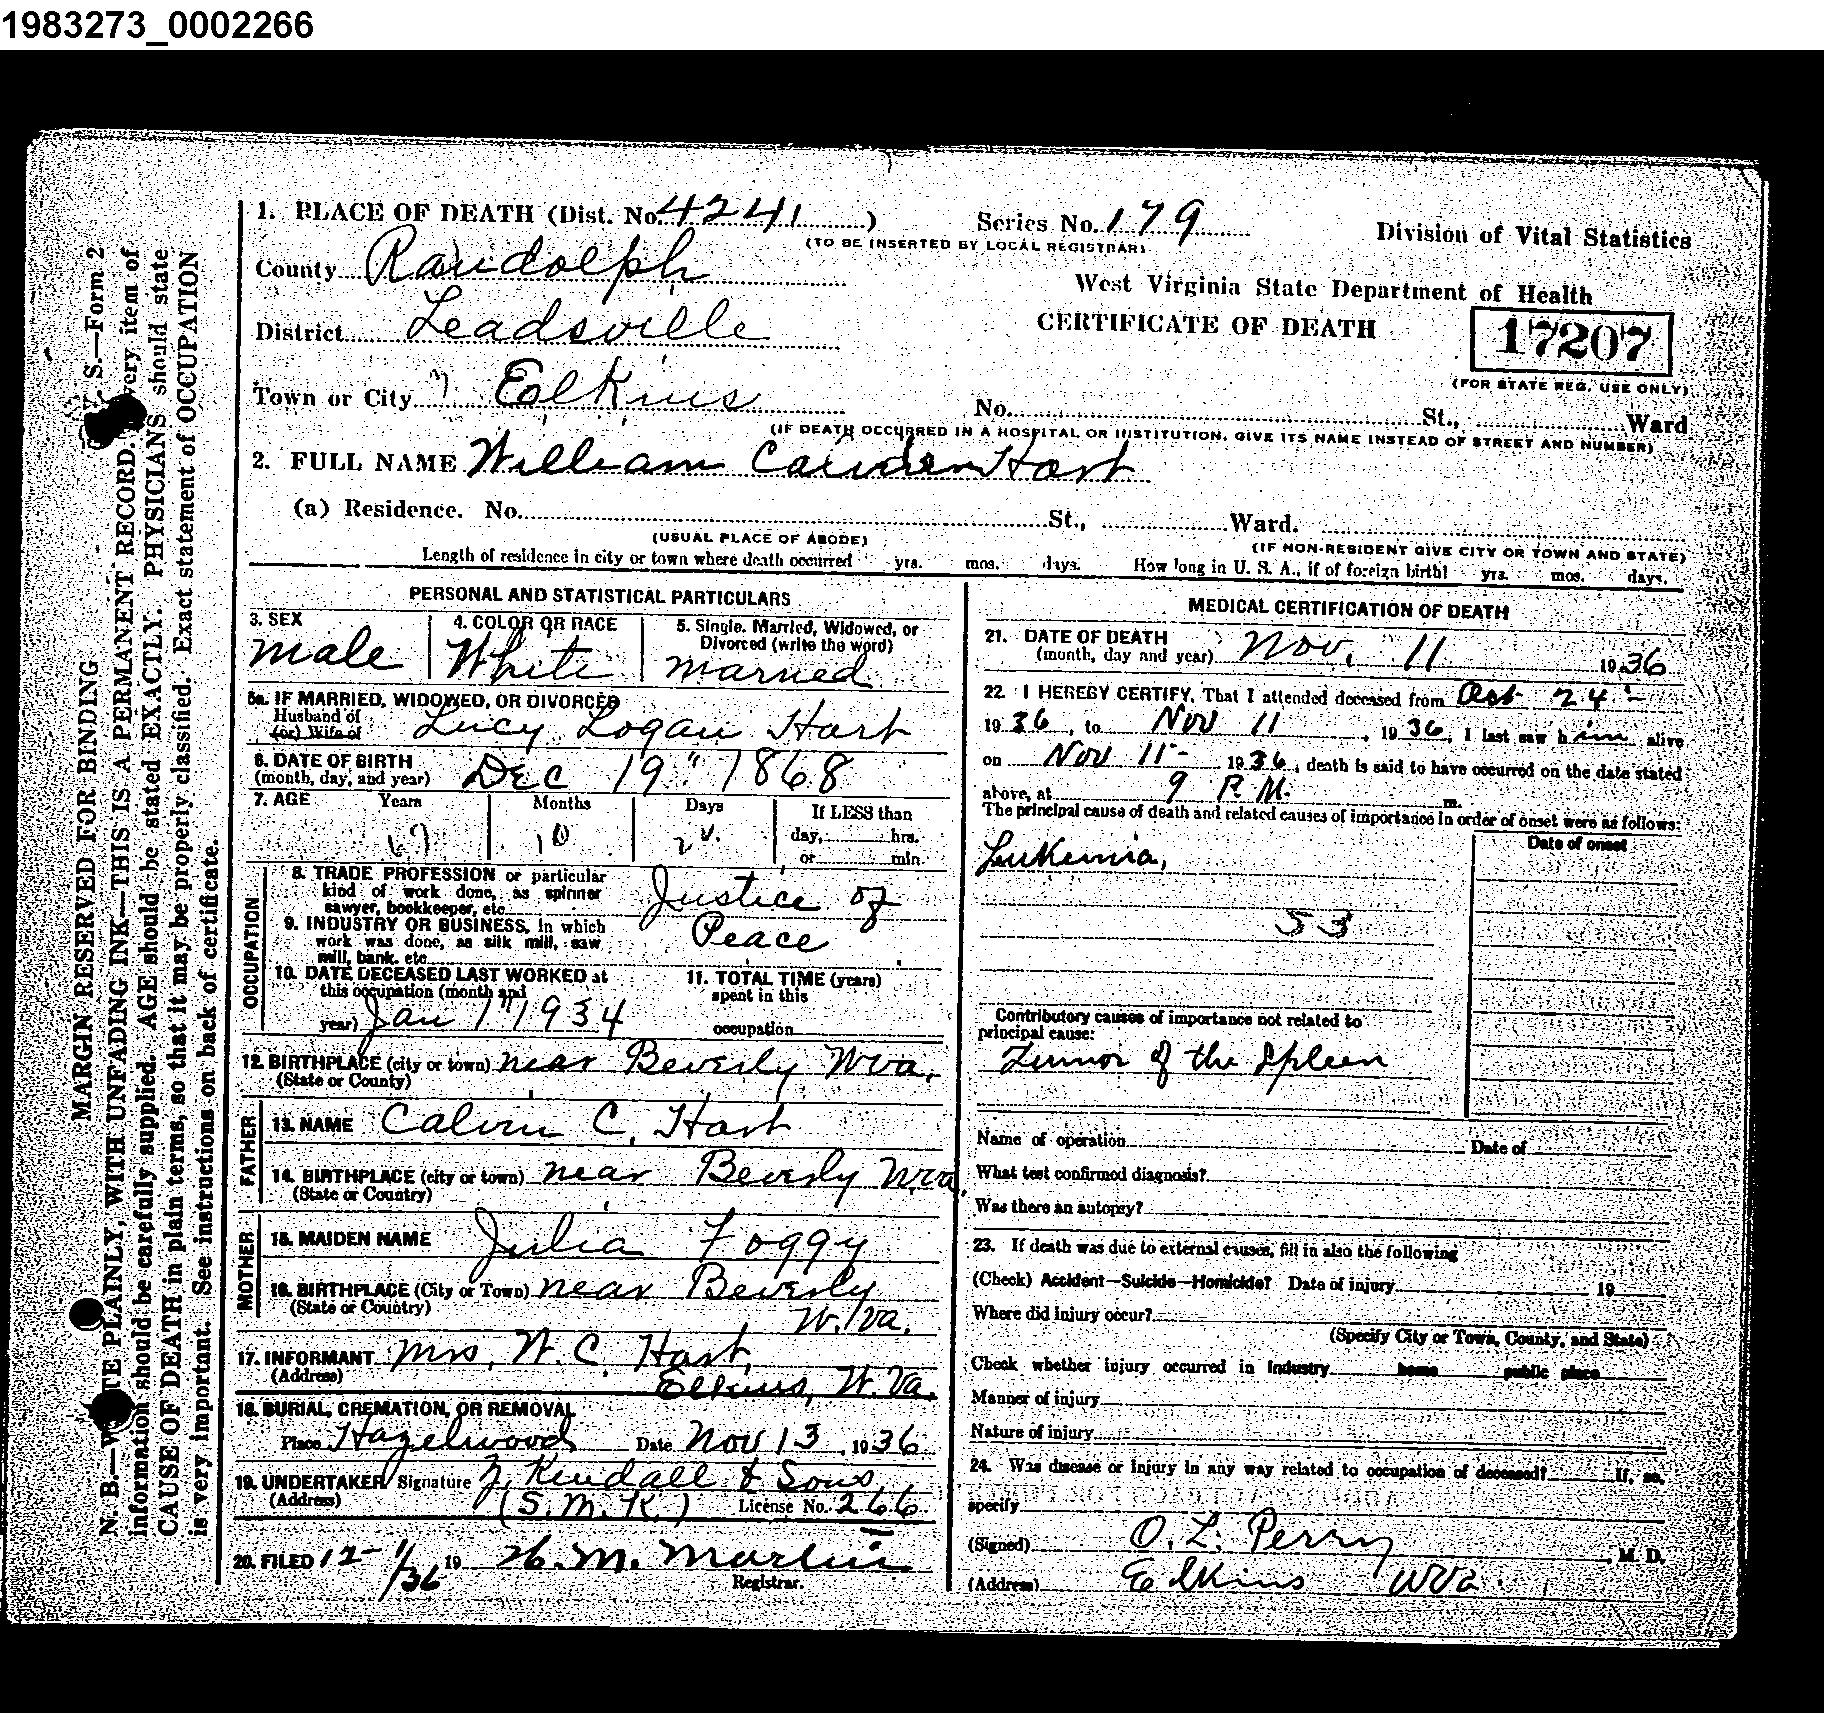 1983273_0002266
1. PLACE OF DEATH (Dist. No. 4241 )
Series No. 179
(TO BE INSERTED BY LOCAL REGISTRAR)
Division of Vital Statistics
County Randolph
West Virginia State Department of Health
District Leadsville
CERTIFICATE OF DEATH
17207
(FOR STATE REG. USE ONLY)
Town or City Elkins
No. St., Ward
(IF DEATH OCCURRED IN A HOSPITAL OR INSTITUTION, GIVE ITS NAME INSTEAD OF STREET AND NUMBER)
2. FULL NAME William Camden Hart
(a) Residence. No. St., Ward.
(USUAL PLACE OF ABODE)
(IF NON-RESIDENT GIVE CITY OR TOWN AND STATE)
Length of residence in city or town where death occurred yrs. mos. days. How long in U. S. A., if of foreign birth? yrs. mos. days.
PERSONAL AND STATISTICAL PARTICULARS
3. SEX
male
4. COLOR OR RACE
White
5. Single, Married, Widowed, or
Divorced (write the word)
married
5a. IF MARRIED, WIDOWED, OR DIVORCED
Husband of
(or) Wife of
Lucy Logan Hart
6. DATE OF BIRTH
(month, day, and year) Dec 19" 1868
7. AGE Years Months Days If LESS than
67 10 day, hrs.
or min.
OCCUPATION
8. TRADE PROFESSION or particular
kind of work done, as spinner
sawyer, bookkeeper, etc.
Justice of
9. INDUSTRY OR BUSINESS, in which
work was done, as silk mill, saw
mill, bank, etc.
Peace
10. DATE DECEASED LAST WORKED at
this occupation (month and
year) Jan 1" 1934
11. TOTAL TIME (years)
spent in this
occupation
12. BIRTHPLACE (city or town) near Beverly Wva.
(State or County)
FATHER
13. NAME Calvin C. Hart
14. BIRTHPLACE (city or town) near Beverly Wva.
(State or Country)
MOTHER
15. MAIDEN NAME Julia Foggy
16. BIRTHPLACE (City or Town) near Beverly
(State or Country) W. Va.
17. INFORMANT Mrs. W. C. Hart,
(Address) Elkins, W. Va.
18. BURIAL, CREMATION, OR REMOVAL
Place Hazelwood Date Nov 13, 1936
19. UNDERTAKER Signature Z. Kendall & Sons
(Address) (S. M. K.) License No. 266
20. FILED 12-1/36 19 M. Martin
Registrar.
MEDICAL CERTIFICATION OF DEATH
21. DATE OF DEATH
(month, day and year) Nov. 11 1936
22. I HEREBY CERTIFY, That I attended deceased from Oct 24-
1936, to Nov 11, 1936, I last saw him alive
on Nov 11- 1936, death is said to have occurred on the date stated
above, at 9 P.M. m.
The principal cause of death and related causes of importance in order of onset were as follows:
Date of onset
Leukemia,
53
Contributory causes of importance not related to
principal cause:
Tumor of the Spleen
Name of operation Date of
What test confirmed diagnosis?
Was there an autopsy?
23. If death was due to external causes, fill in also the following
(Check) Accident—Suicide—Homicide? Date of injury 19
Where did injury occur?
(Specify City or Town, County, and State)
Check whether injury occurred in industry home public place
Manner of injury
Nature of injury
24. Was disease or injury in any way related to occupation of deceased? If, so,
specify
(Signed) O. L. Perry, M. D.
(Address) Elkins Wva.
S.—Form 2
MARGIN RESERVED FOR BINDING
N. B.—WRITE PLAINLY, WITH UNFADING INK—THIS IS A PERMANENT RECORD. Every item of
information should be carefully supplied. AGE should be stated EXACTLY. PHYSICIANS should state
CAUSE OF DEATH in plain terms, so that it may be properly classified. Exact statement of OCCUPATION
is very important. See instructions on back of certificate.